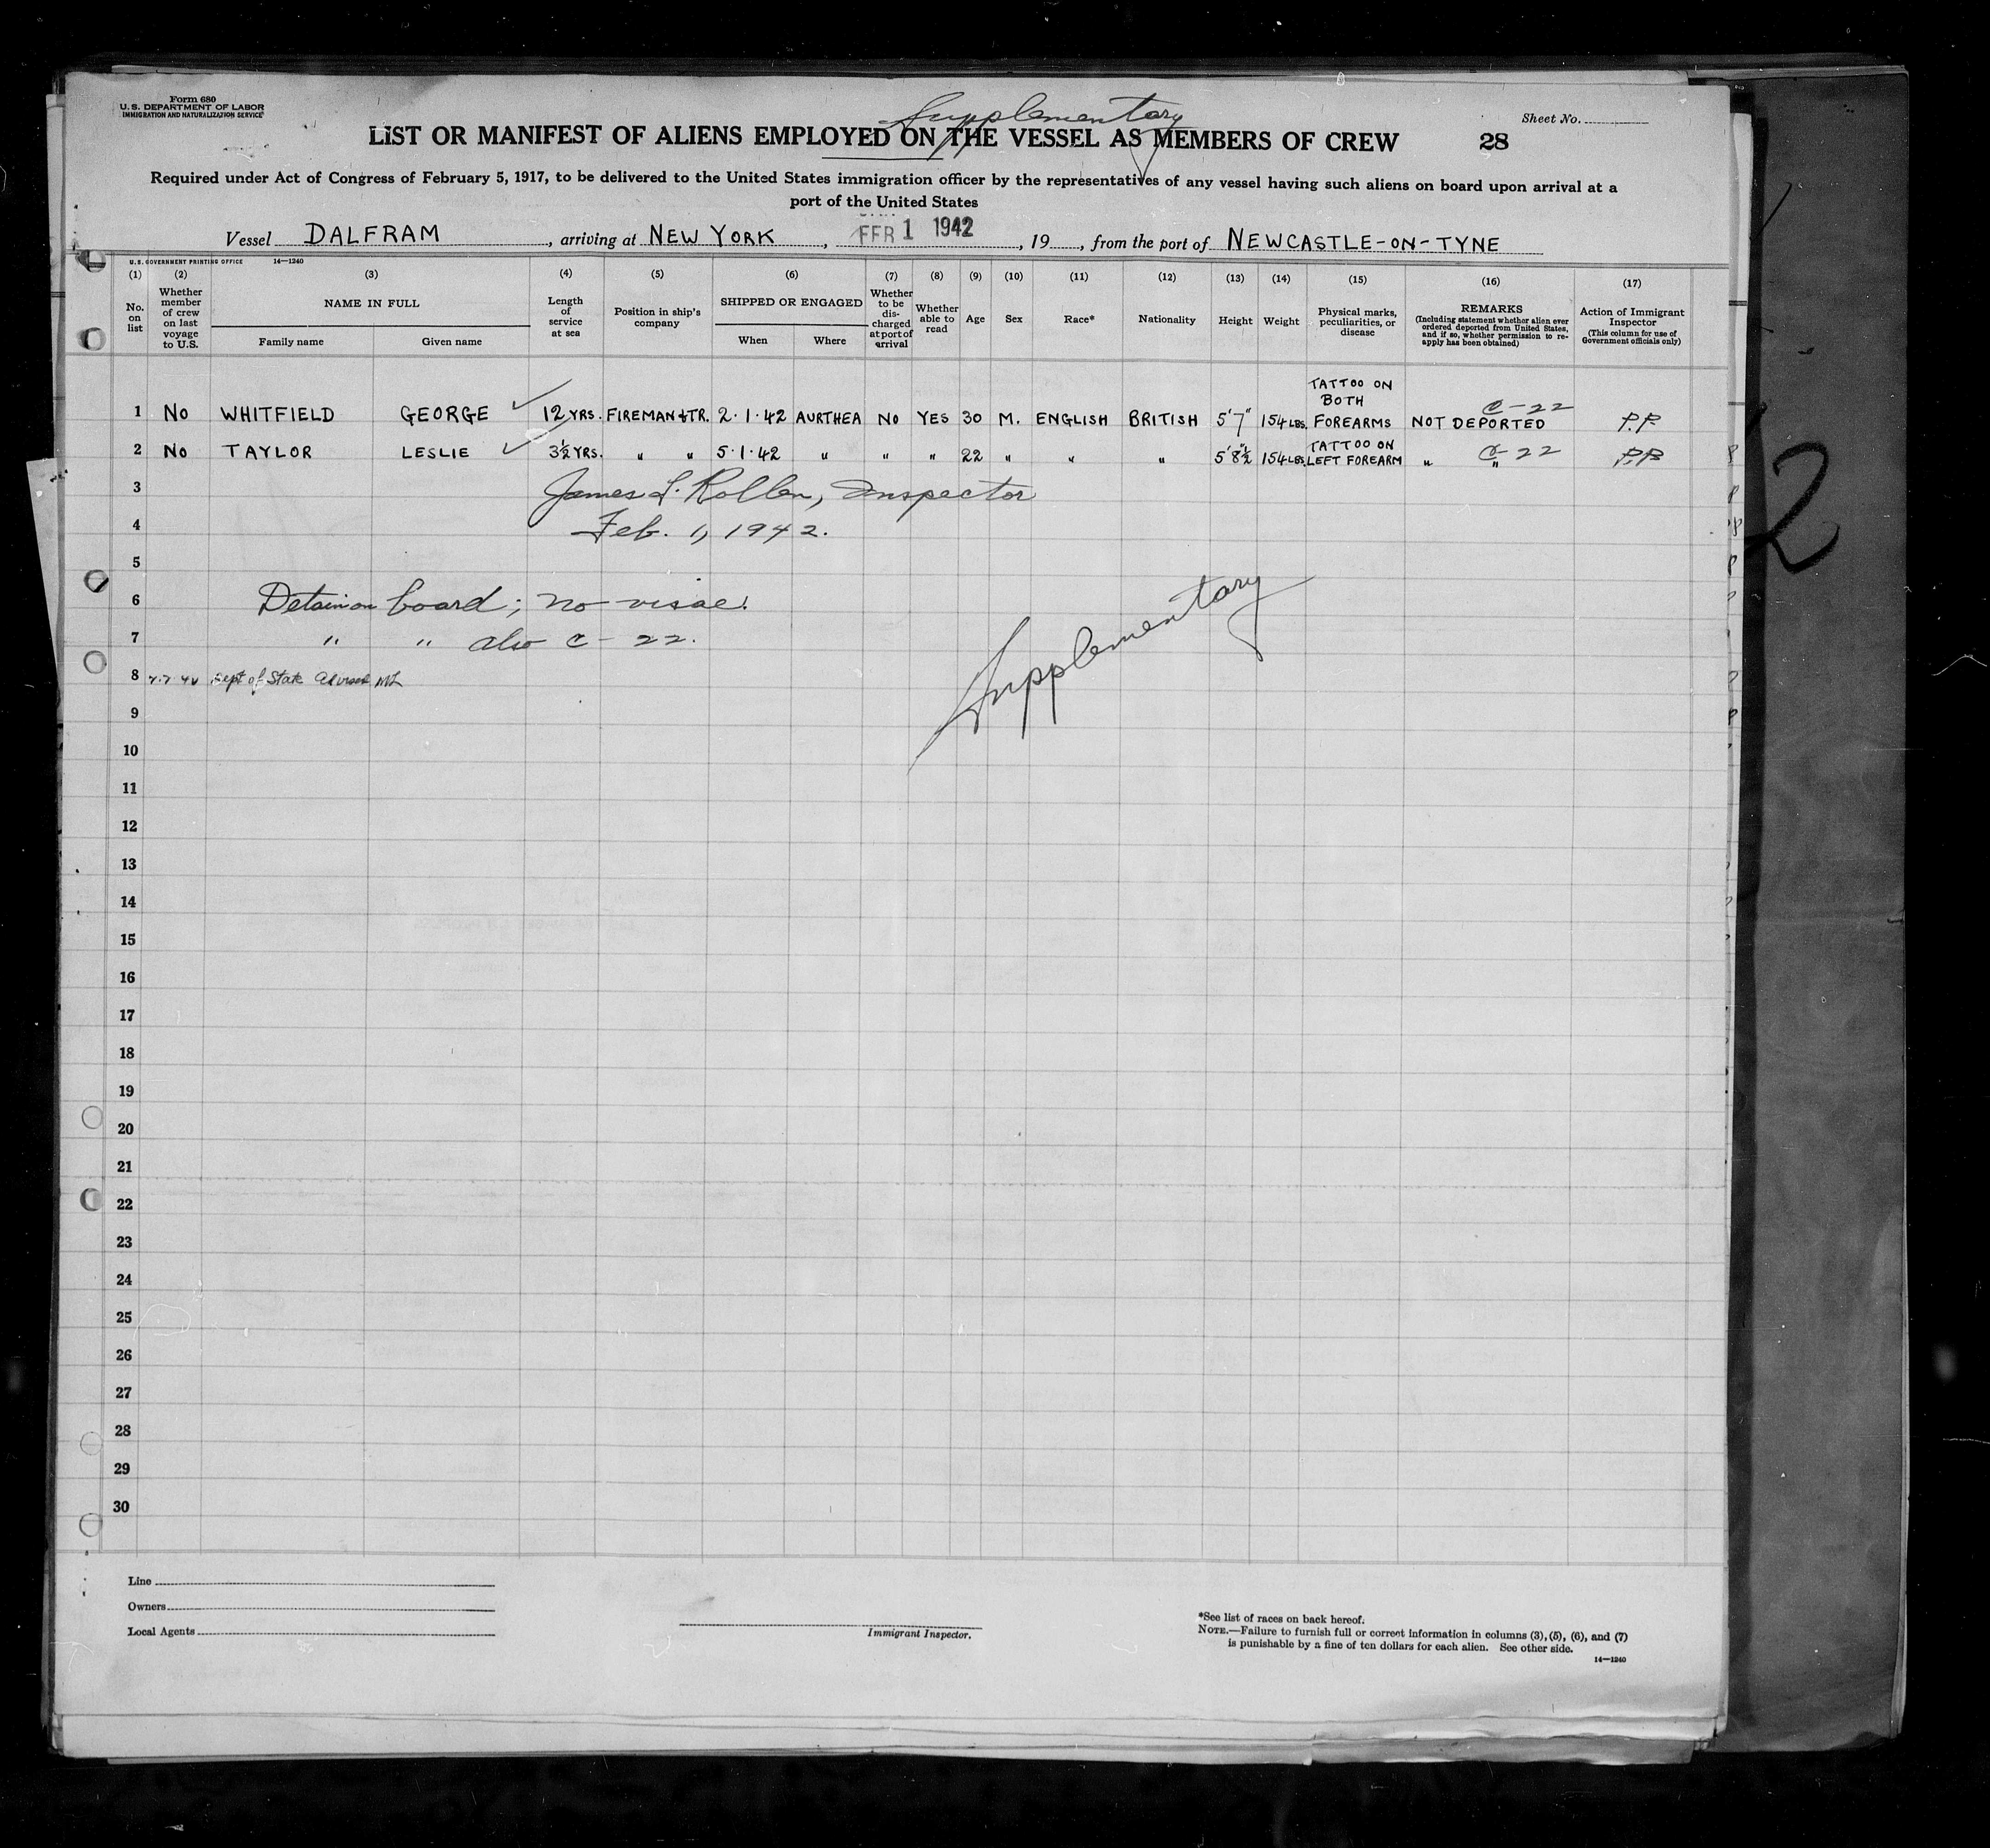 Form 680
U. S. DEPARTMENT OF LABOR
IMMIGRATION AND NATURALIZATION SERVICE
Supplementary
Sheet No.
LIST OR MANIFEST OF ALIENS EMPLOYED ON THE VESSEL AS MEMBERS OF CREW 28
Required under Act of Congress of February 5, 1917, to be delivered to the United States immigration officer by the representatives of any vessel having such aliens on board upon arrival at a
port of the United States
Vessel DALFRAM, arriving at NEW YORK, FEB 1 1942, 19, from the port of NEWCASTLE-ON-TYNE
U. S. GOVERNMENT PRINTING OFFICE 14—1240
(1) (2) (3) (4) (5) (6) (7) (8) (9) (10) (11) (12) (13) (14) (15) (16) (17)
No. on list
Whether member of crew on last voyage to U.S.
NAME IN FULL
Family name Given name
Length of service at sea
Position in ship's company
SHIPPED OR ENGAGED
When Where
Whether to be discharged at port of arrival
Whether able to read
Age
Sex
Race*
Nationality
Height
Weight
Physical marks, peculiarities, or disease
REMARKS
(Including statement whether alien ever ordered deported from United States, and if so, whether permission to reapply has been obtained)
Action of Immigrant Inspector
(This column for use of Government officials only)
1 NO WHITFIELD GEORGE 12 YRS. FIREMAN & TR. 2·1·42 AURTHEA NO YES 30 M. ENGLISH BRITISH 5'7" 154 LBS. TATTOO ON BOTH FOREARMS NOT DEPORTED C-22 P.P
2 NO TAYLOR LESLIE 3½ YRS. " " 5·1·42 " " " 22 " " " 5'8½" 154 LBS. TATTOO ON LEFT FOREARM " " C-22 P.P
3 James L. Rollen, Inspector
4 Feb. 1, 1942.
5
6 Detain on board; no visae.
7 " " also C-22.
8 Dept of State advised
Supplementary
9
10
11
12
13
14
15
16
17
18
19
20
21
22
23
24
25
26
27
28
29
30
Line
Owners
Local Agents
Immigrant Inspector.
*See list of races on back hereof.
NOTE.—Failure to furnish full or correct information in columns (3), (5), (6), and (7)
is punishable by a fine of ten dollars for each alien. See other side.
14—1240
2